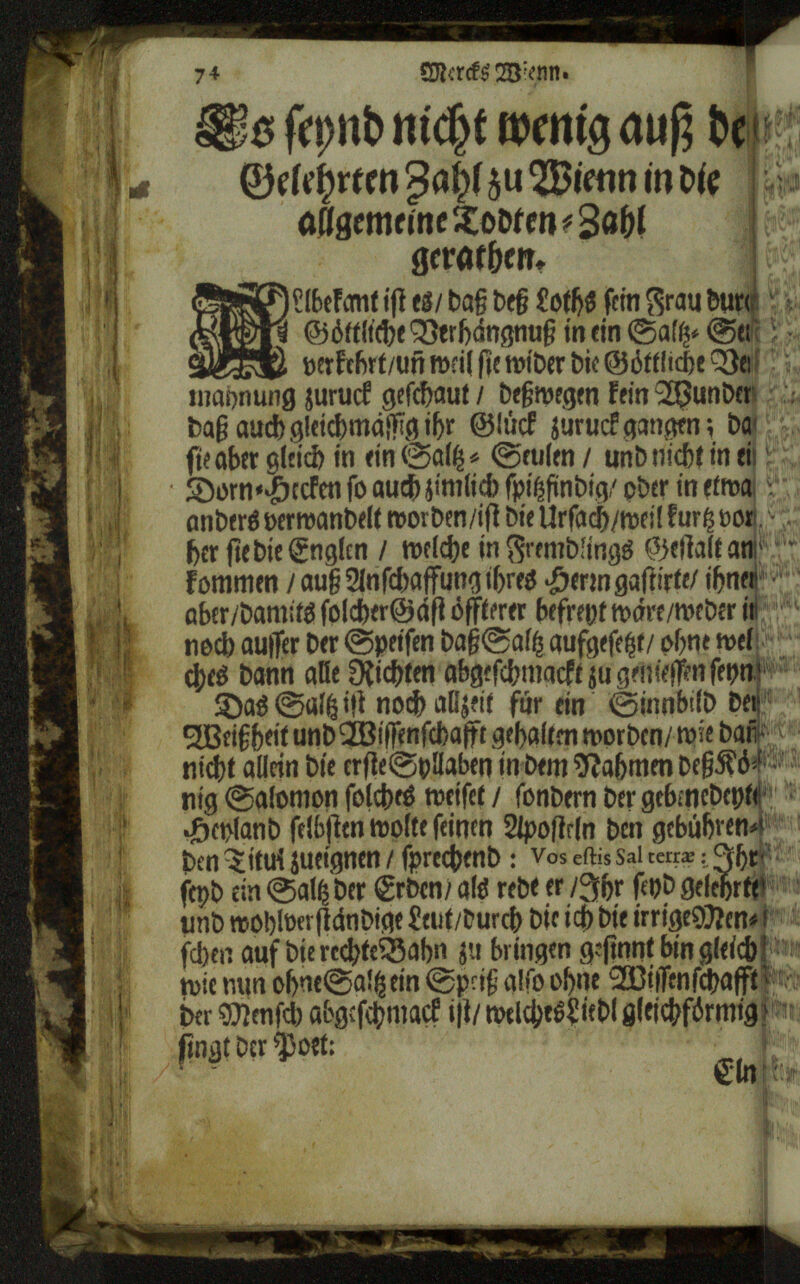 74 Mercks Wienn.
Es seynd nicht wenig auß de
Gelehrten Zahl zu Wienn in die
allgemeine Todten-Zahl
gerathen.
Elbekant ist es/ daß deß Loths sein Frau durc
Göttliche Verhängnuß in ein Saltz-
verkehrt/un weil sie wider die Göttliche
mahnung zuruck geschaut / deßwegen kein Wunder
daß auch gleichmässig ihr Glück zuruck gangen; da
sie aber gleich in ein Saltz-Seulen / und nicht in ei
Dorn-Hecken so auch zimlich spitzfindig/ oder in etwa
anders verwandelt worden/ist die Ursach/weil kurtz vor
her sie die Englen / welche in Frembdlings Gestalt an
kommen / auß Anschaffung ihres Herrn gastirte/ ihnen
aber/damits solcher Gäst öffterer befreyt wäre/weder i
noch ausser der Speisen daß Saltz aufgesetzt/ ohne wel
ches dann alle Richten abgeschmackt zu geniessen seyn
Das Saltz ist noch allzeit für ein Sinnbild de
Weißheit und Wissenschafft gehalten worden/ wie dañ
nicht allein die erste Syllaben in dem Nahmen deß Kö-
nig Salomon solches weiset / sondern der gebenedeyte
Heyland selbsten wolte seinen Aposteln den gebühren-
den Titul zueignen / sprechend : Vos estis Sal terræ : Ihr
seyd ein Saltz der Erden/ als rede er /Ihr seyd gelehrte
und wohlverständige Leut/durch die ich die irrige Men-
schen auf die rechte Bahn zu bringen gesinnt bin gleich
wie nun ohne Saltz ein Speiß also ohne Wissenschafft
der Mensch abgeschmack ist/ welches Liedl gleichförmig
singt der Poet:
Ein